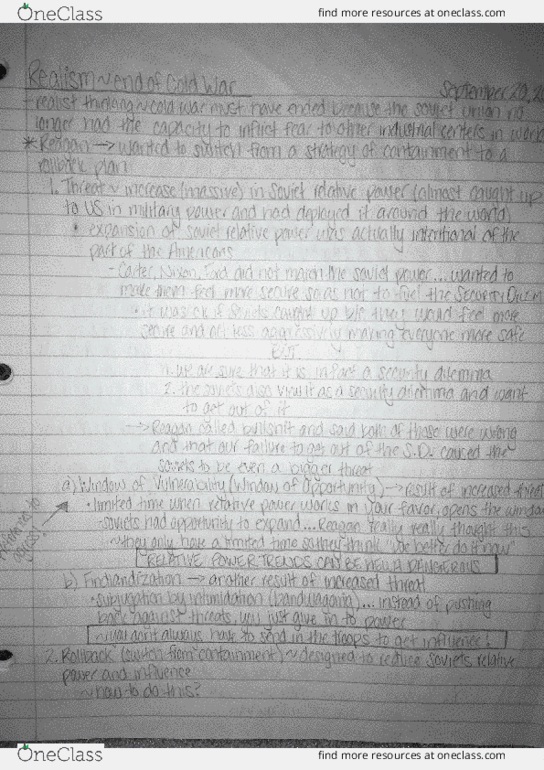 OneClass find more resources at oneclass.com
Realism ~ end of Cold War
September 20, 20
realist thinking ~ cold war must have ended because the soviet union no
longer had the capacity to inflict fear to other industrial centers in world
* Reagan → wanted to switch from a strategy of containment to a
rollback plan
1. Threat ~ increase (massive) in Soviet relative power (almost caught up
to US in military power and had deployed it around the world)
• expansion of soviet relative power was actually intentional of the
part of the Americans
- Carter, Nixon, Ford did not match the soviet power... wanted to
make them feel more secure so as not to fuel the Security Dilem
• it was ok if Soviets caught up b/c they would feel more
secure and act less aggressively making everyone more safe
BUT:
1. we are sure that it is in fact a security dilemma
2. the soviets also view it as a security dilemma and want
to get out of it
→ Reagan called bullshit and said both of those were wrong
and that our failure to get out of the S.D. caused the
soviets to be even a bigger threat
a) Window of Vulnerability (Window of Opportunity) → result of increased threat
• limited time when relative power works in your favor, opens the window
- soviets had opportunity to expand... Reagan really really thought this
~ they only have a limited time so they think "we better do it now"
RELATIVE POWER TRENDS CAN BE DANGEROUS
b) Findlandization → another result of increased threat
• subjugation by intimidation (bandwagoning)... instead of pushing
back against threats, you just give in to power
~ you don't always have to send in the troops to get influence!
2. Rollback (switch from containment) ~ designed to reduce Soviets relative
power and influence
~ how to do this?
OneClass find more resources at oneclass.com